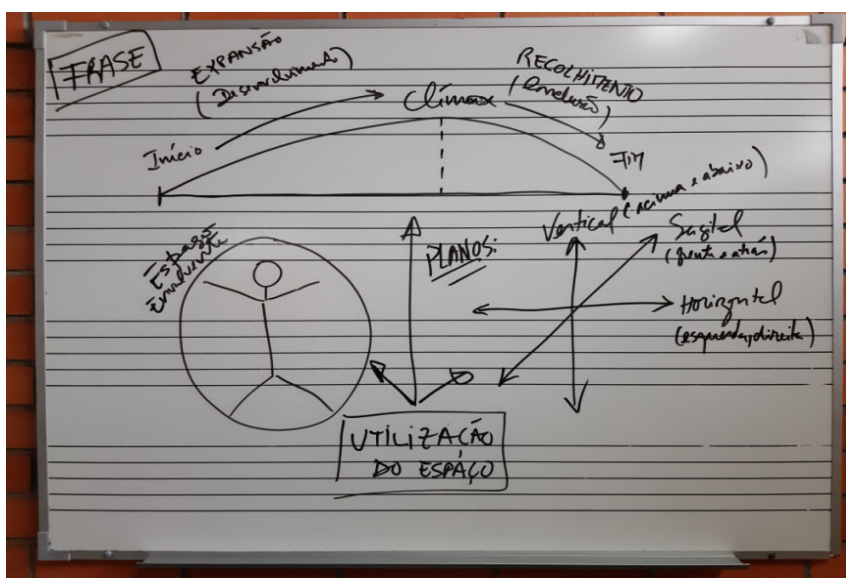 FRASE
EXPANSÃO
(Desenvolvimento)
Clímax
RECOLHIMENTO
(Conclusão)
Início
FIM
Espaço
PLANOS:
Vertical (acima e abaixo)
Sagital
(frente e atrás)
Horizontal
(esquerda, direita)
UTILIZAÇÃO
DO ESPAÇO